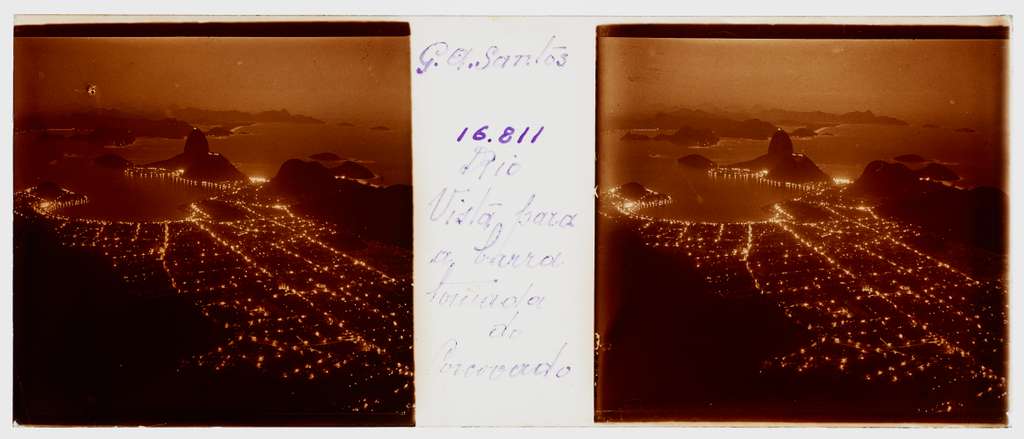 G. A. Santos
16.811
Rio
Vista para
a barra
tomada
do
Corcovado